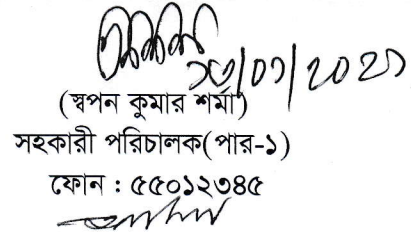 (স্বপন কুমার শর্মা)
সহকারী পরিচালক(পার-১)
ফোন : ৫৫০১২৩৪৫